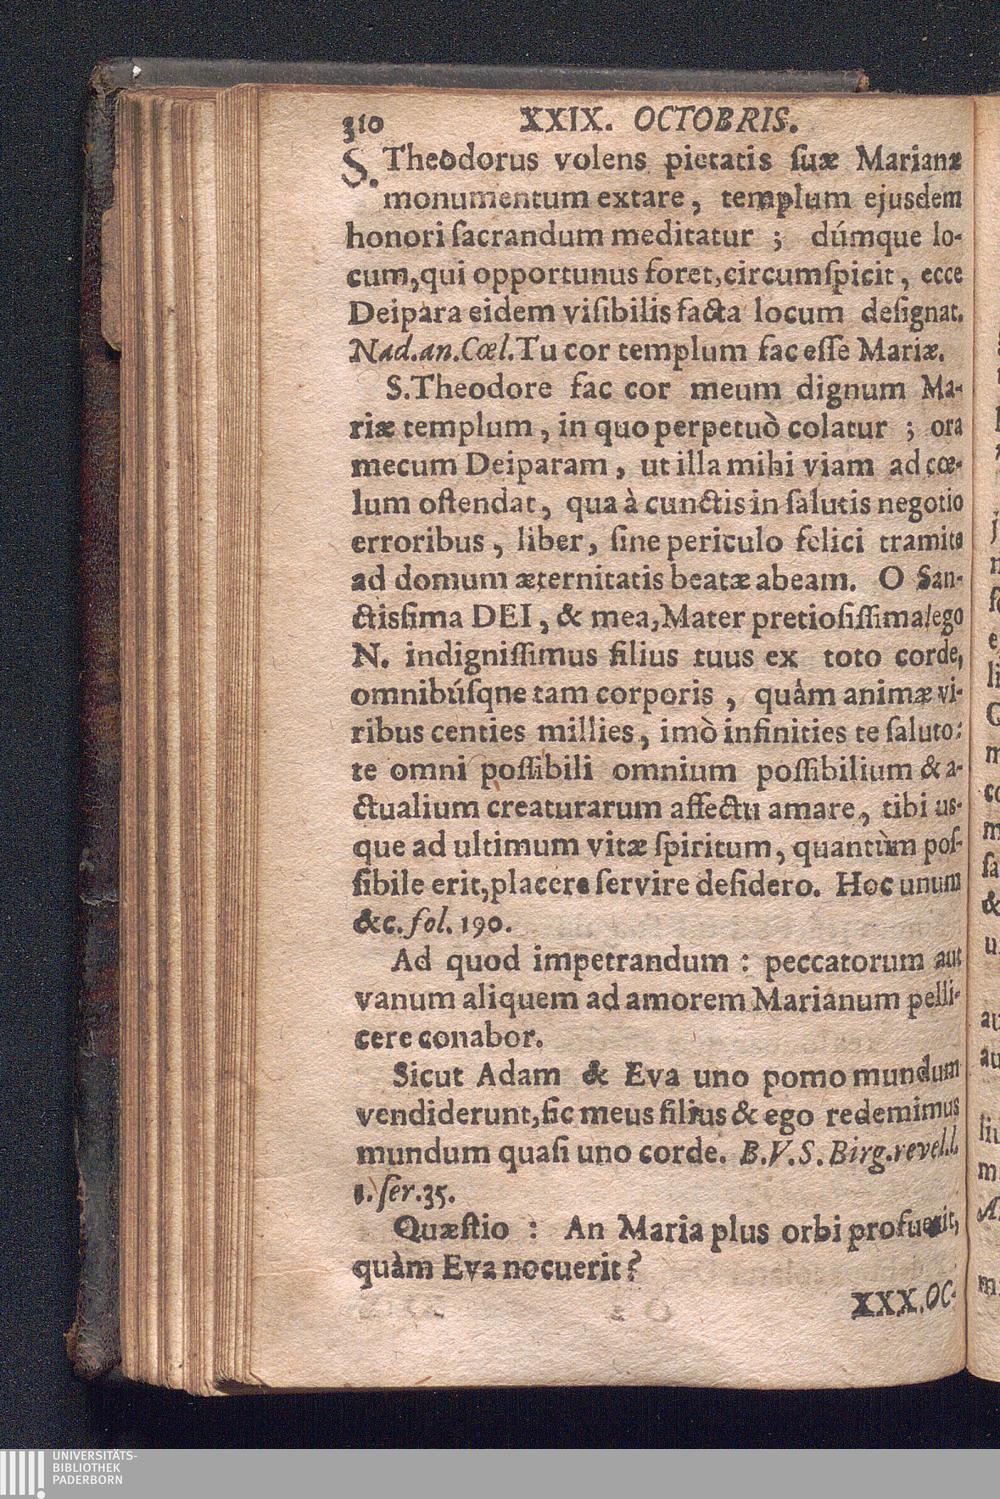 310 XXIX. OCTOBRIS.
S. Theodorus volens pietatis ſuæ Marianæ
monumentum extare, templum ejusdem
honori ſacrandum meditatur ; dúmque lo-
cum, qui opportunus foret, circumſpicit, ecce
Deipara eidem viſibilis facta locum deſignat.
Nad. an. Cœl. Tu cor templum fac eſſe Mariæ.
S. Theodore fac cor meum dignum Ma-
riæ templum, in quo perpetuò colatur ; ora
mecum Deiparam, ut illa mihi viam ad cœ-
lum oſtendat, qua à cunctis in ſalutis negotio
erroribus, liber, ſine periculo felici tramite
ad domum æternitatis beatæ abeam. O San-
ctisſima DEI, & mea, Mater pretioſiſſima! ego
N. indigniſſimus filius tuus ex toto corde,
omnibúſqne tam corporis, quàm animæ vi-
ribus centies millies, imò infinities te ſaluto:
te omni poſſibili omnium poſſibilium & a-
ctualium creaturarum affectu amare, tibi us-
que ad ultimum vitæ ſpiritum, quantùm poſ-
ſibile erit, placere ſervire deſidero. Hoc unum
&c. fol. 190.
Ad quod impetrandum : peccatorum aut
vanum aliquem ad amorem Marianum pelli-
cere conabor.
Sicut Adam & Eva uno pomo mundum
vendiderunt, ſic meus filius & ego redemimus
mundum quaſi uno corde. B. V. S. Birg. revel. l.
1. ſer. 35.
Quæſtio : An Maria plus orbi profuerit,
quàm Eva nocuerit?
XXX. OC-
UNIVERSITÄTS-
BIBLIOTHEK
PADERBORN